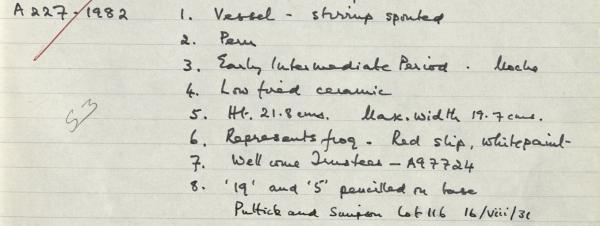 A 227-1982 1. Vessel - stirrup spouted
2. Peru
3. Early Intermediate Period. Moche
4. Low fired ceramic
5. Ht. 21.8 cms. Max. width 19.7 cms.
6. Represents frog. Red slip, white paint-
53
7. Wellcome Trustees - A97724
8. '19' and '5' pencilled on base
Puttick and Simpson Lot 116 16/viii/31